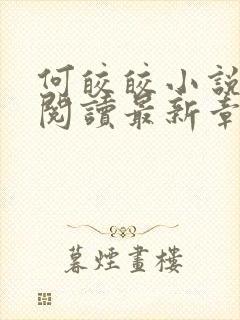 何皎皎小說
閱讀最新章
暮煙畫樓